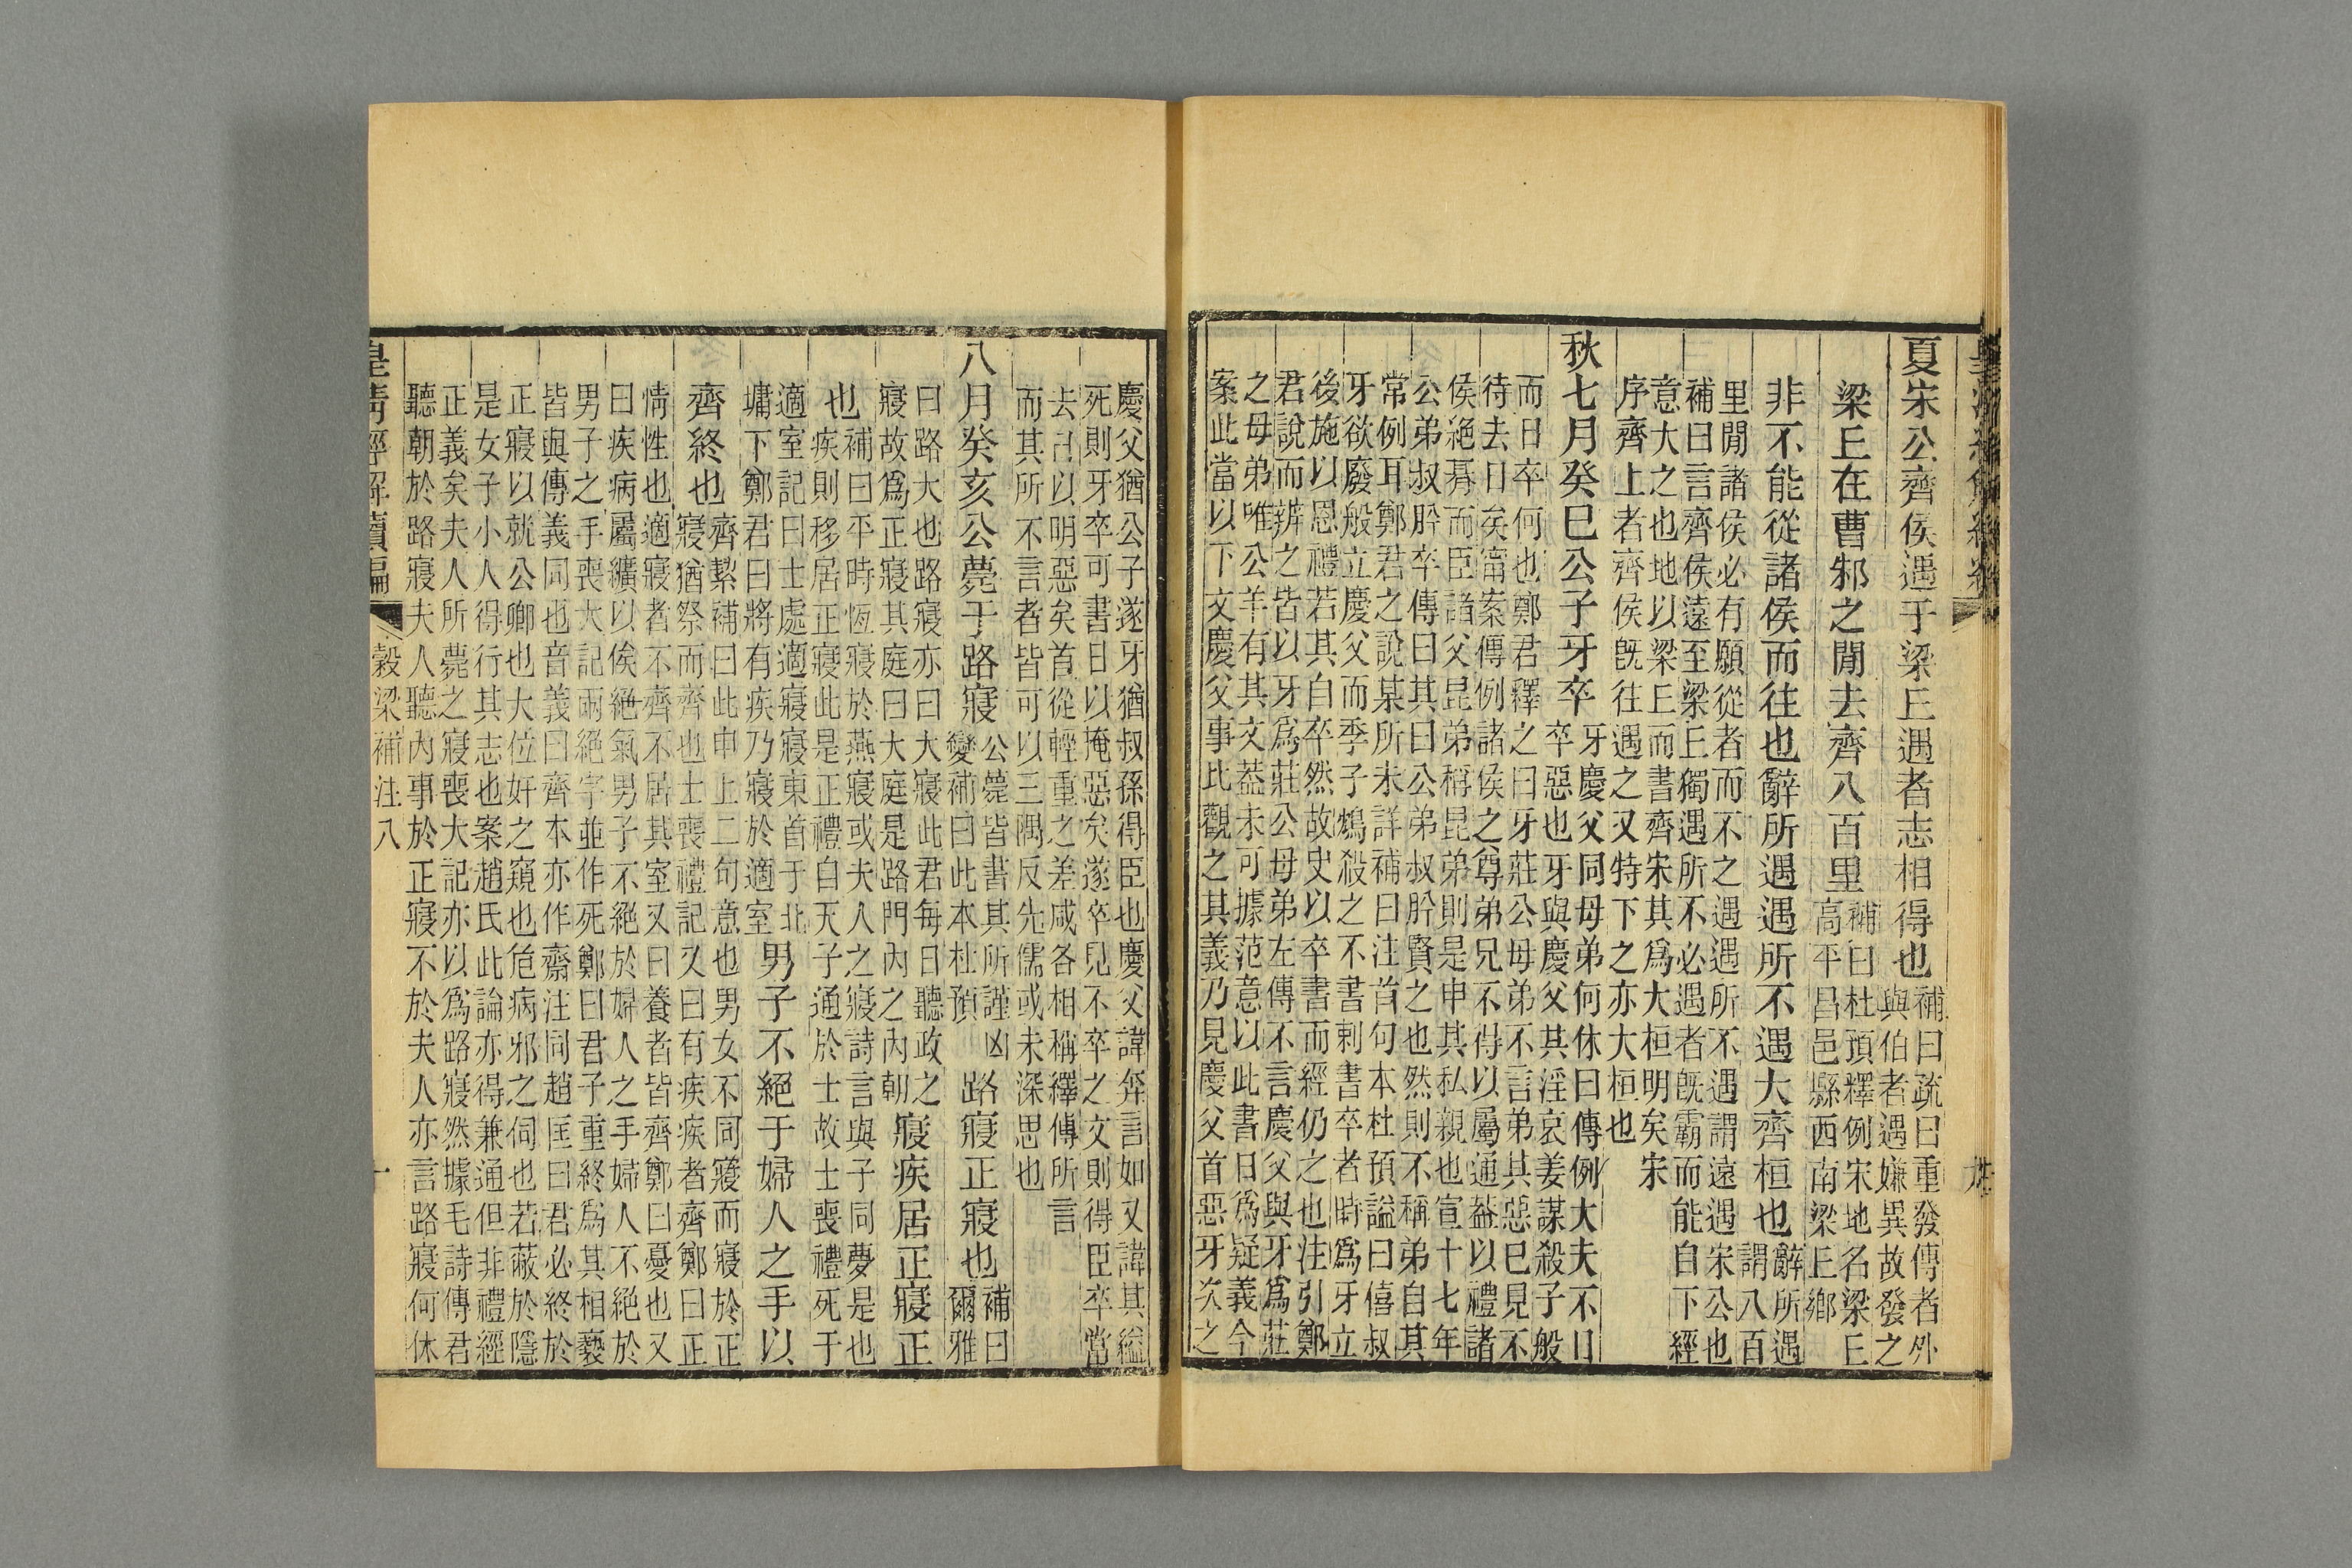 夏宋公齊侯遇于梁丘遇者志相得也
補曰疏曰重發傳者外
與伯者遇嫌異故發之
梁丘在曹邾之閒去齊八百里
補曰杜預釋例宋地名梁丘
高平昌邑縣西南梁丘鄉
非不能從諸侯而往也辭所遇遇所不遇大齊桓也
辭所遇
謂八百
里閒諸侯必有願從者而不之遇遇所不遇謂遠遇宋公也
補曰言齊侯遠至梁丘獨遇所不必遇者旣霸而能自下經
意大之也地以梁丘而書齊宋其爲大桓明矣宋
序齊上者齊侯旣往遇之又特下之亦大桓也
秋七月癸巳公子牙卒
牙慶父同母弟何休曰傳例大夫不日
卒惡也牙與慶父其淫哀姜謀殺子般
而日卒何也鄭君釋之曰牙莊公母弟不言弟其惡已見不
待去日矣甯案傳例諸侯之尊弟兄不得以屬通蓋以禮諸
侯絕朞而臣諸父昆弟稱昆弟則是申其私親也宣十七年
公弟叔肸卒傳曰其曰公弟叔肸賢之也然則不稱弟自其
常例耳鄭君之說某所未詳補曰注首句本杜預謚曰僖叔
牙欲廢般立慶父而季子鴆殺之不書刺書卒者時爲牙立
後施以恩禮若其自卒然故史以卒書而經仍之也注引鄭
君說而辨之皆以牙爲莊公母弟左傳不言慶父與牙爲莊
之母弟唯公羊有其文蓋未可據范意以此書日爲疑義今
案此當以下文慶父事比觀之其義乃見慶父首惡牙次之
慶父猶公子遂牙猶叔孫得臣也慶父諱奔言如又諱其縊
死則牙卒可書日以掩惡矣遂卒見不卒之文則得臣卒當
去日以明惡矣首從輕重之差咸各相稱繹傳所言
而其所不言者皆可以三隅反先儒或未深思也
八月癸亥公薨于路寢
公薨皆書其所謹凶
變補曰此本杜預
路寢正寢也
補曰
爾雅
曰路大也路寢亦曰大寢此君每日聽政之
寢故爲正寢其庭曰大庭是路門內之內朝
寢疾居正寢正
也
補曰平時恆寢於燕寢或夫人之寢詩言與子同夢是也
疾則移居正寢此是正禮自天子通於士故士喪禮死于
適室記曰士處適寢寢東首于北
墉下鄭君曰將有疾乃寢於適室
男子不絕于婦人之手以
齊終也
齊絜補曰此申上二句意也男女不同寢而寢於正
寢猶祭而齊也士喪禮記又曰有疾疾者齊鄭曰正
情性也適寢者不齊不居其室又曰養者皆齊鄭曰憂也又
曰疾病屬纊以俟絕氣男子不絕於婦人之手婦人不絕於
男子之手喪大記兩絕字並作死鄭曰君子重終爲其相褻
皆與傳義同也音義曰齊本亦作齋注同趙匡曰君必終於
正寢以就公卿也大位奸之窺也危病邪之伺也若蔽於隱
是女子小人得行其志也案趙氏此論亦得兼通但非禮經
正義矣夫人所薨之寢喪大記亦以爲路寢然據毛詩傳君
聽朝於路寢夫人聽內事於正寢不於夫人亦言路寢何休
皇清經解續編
穀梁補注八